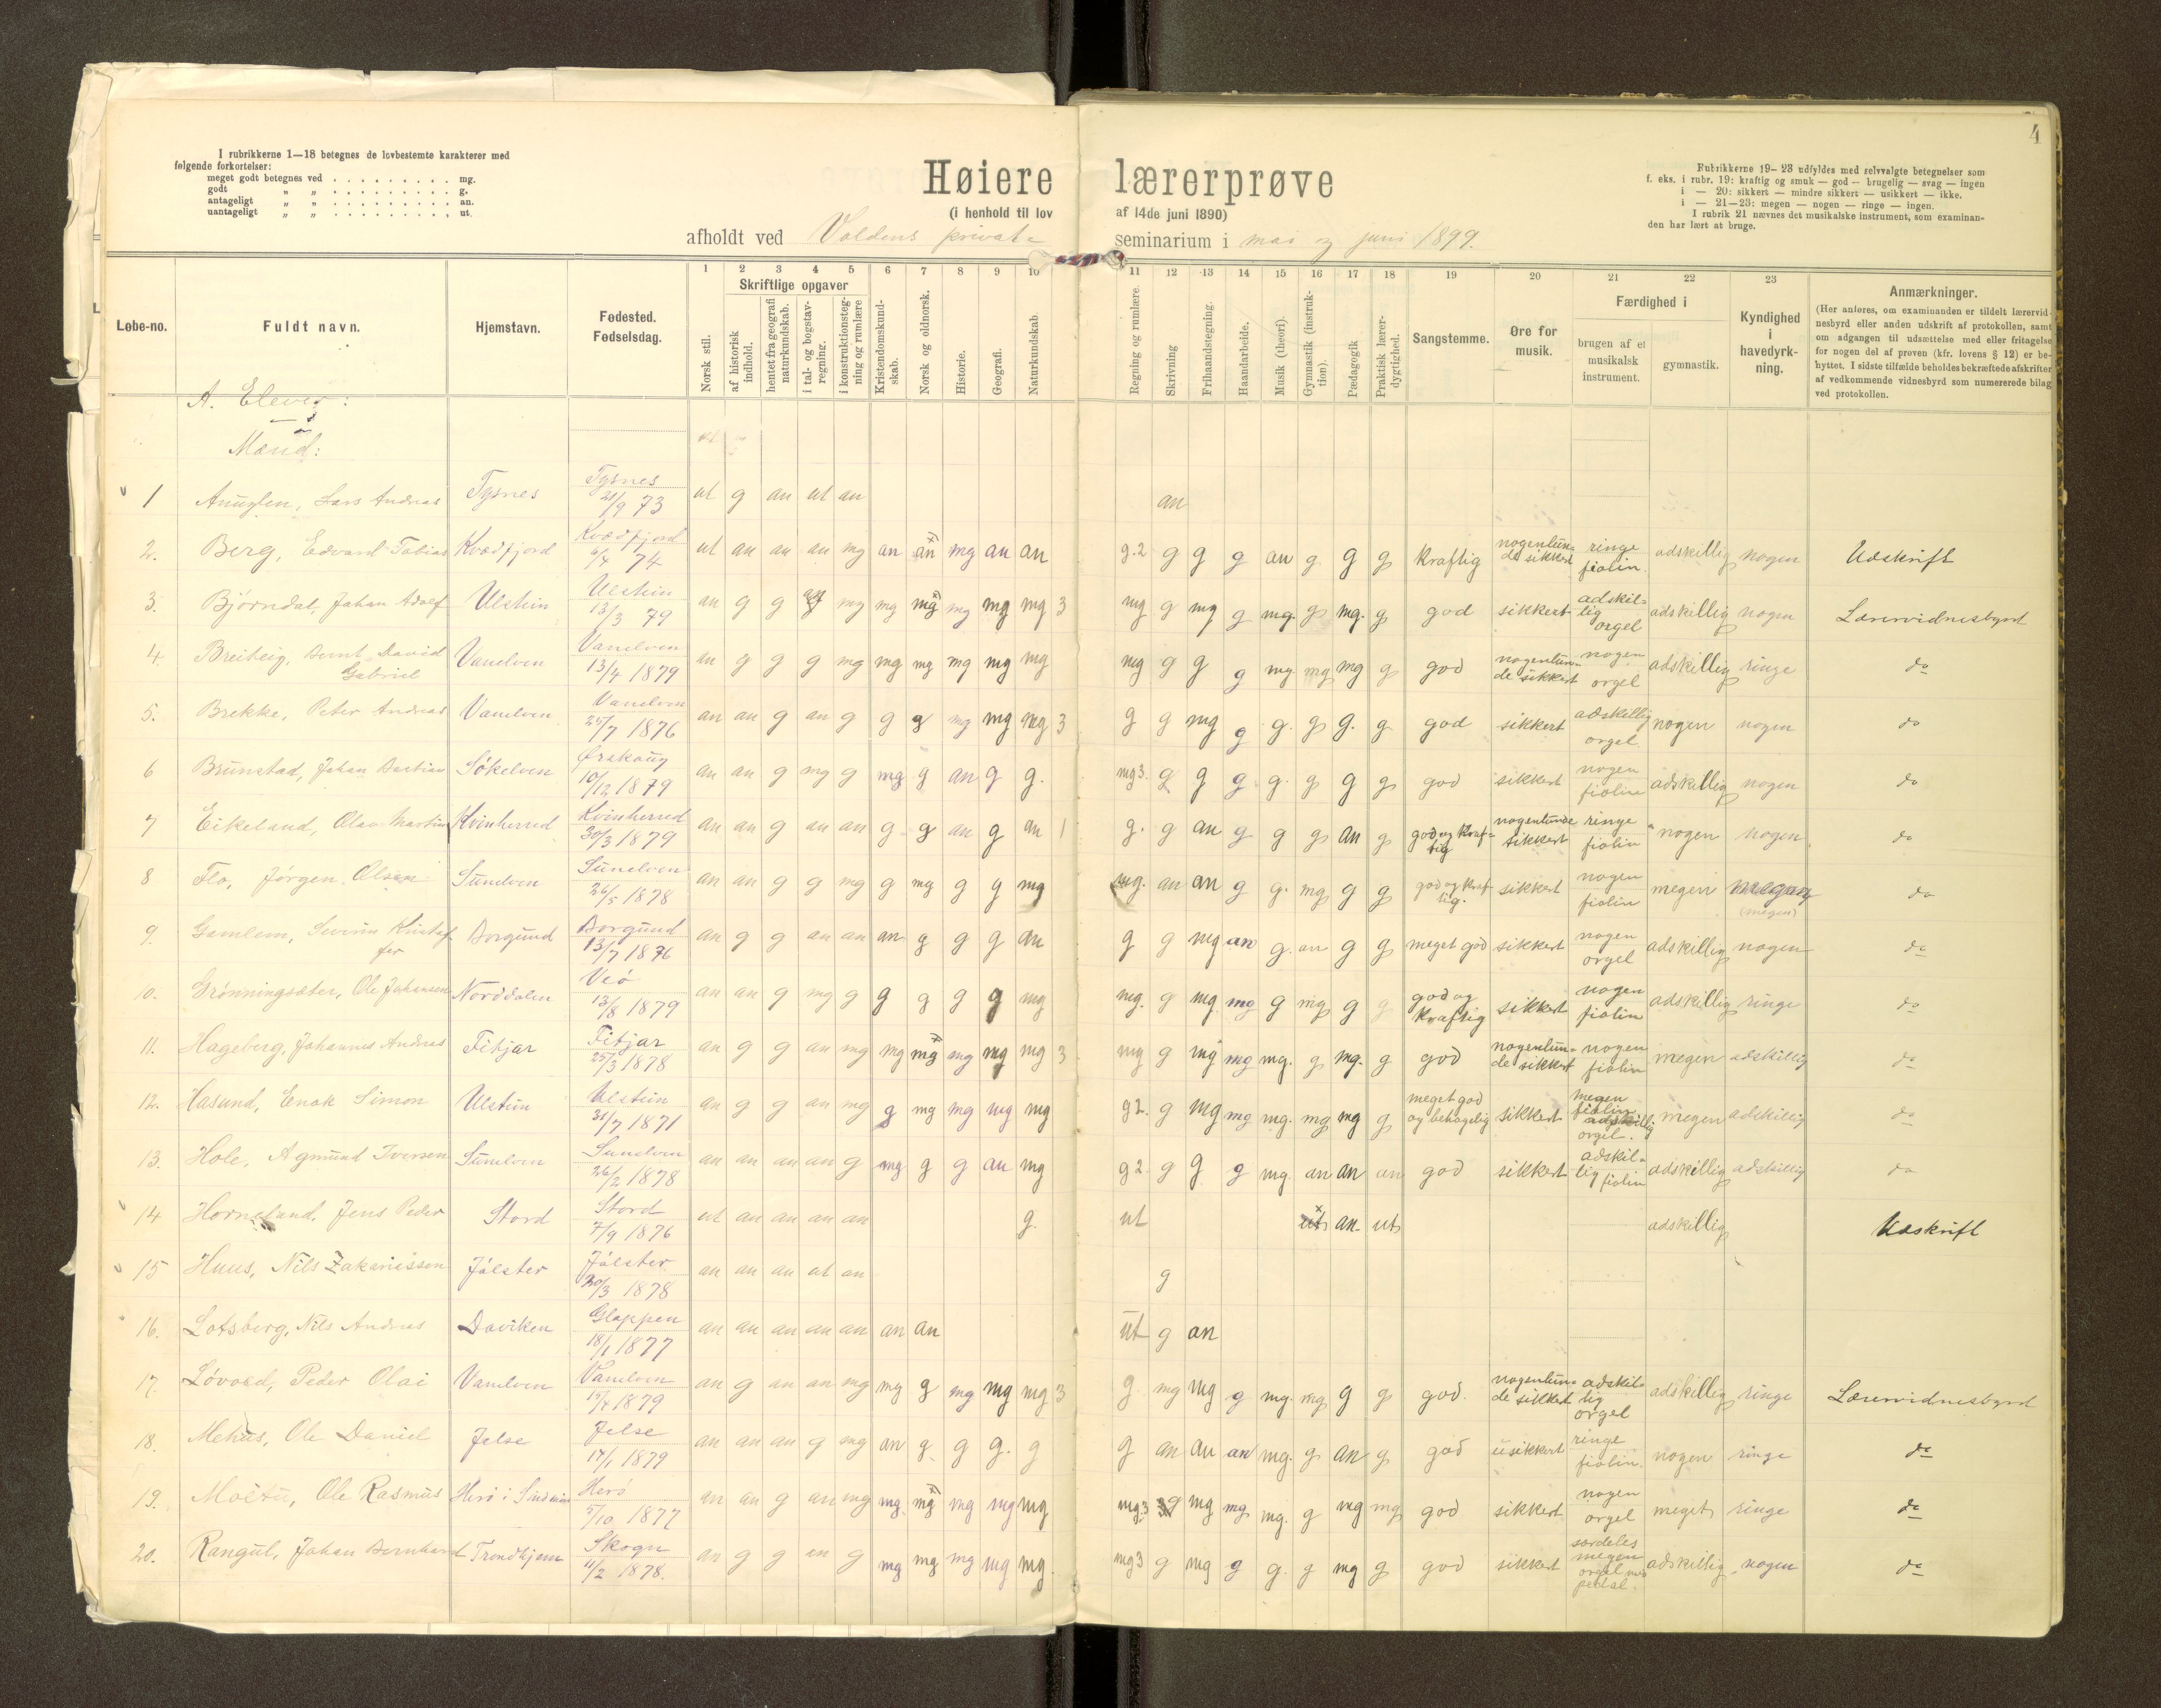 4
I rubrikkerne 1—18 betegnes de lovbestemte karakterer med
følgende forkortelser:
meget godt betegnes ved . . . . . . . . . . mg.
godt „ „ . . . . . . . . . . g.
antageligt „ „ . . . . . . . . . . an.
uantageligt „ „ . . . . . . . . . . ut.
Høiere lærerprøve
(i henhold til lov af 14de juni 1890)
afholdt ved Voldens private seminarium i mai og juni 1899.
Rubrikkerne 19—23 udfyldes med selvvalgte betegnelser som
f. eks. i rubr. 19: kraftig og smuk — god — brugelig — svag — ingen
i — 20: sikkert — mindre sikkert — usikkert — ikke.
i — 21—23: megen — nogen — ringe — ingen.
I rubrik 21 nævnes det musikalske instrument, som examinan-
den har lært at bruge.
1 2 3 4 5 6 7 8 9 10 11 12 13 14 15 16 17 18 19 20 21 22 23
Løbe-no.
Fuldt navn.
Hjemstavn.
Fødested.
Fødselsdag.
Norsk stil.
Skriftlige opgaver
af historisk indhold.
hentet fra geografi naturkundskab.
i tal- og bogstav-regning.
i konstruktionsteg-ning og rumlære
Kristendomskund-skab.
Norsk og oldnorsk.
Historie.
Geografi.
Naturkundskab
Regning og rumlære.
Skrivning
Frihaandstegning.
Haandarbeide.
Musik (theori).
Gymnastik (instruk-tion).
Pædagogik
Praktisk lærer-dygtighed.
Sangstemme.
Øre for musik.
Færdighed i
brugen af et musikalsk instrument.
gymnastik.
Kyndighed i havedyrk-ning.
Anmærkninger.
(Her anføres, om examinanden er tildelt lærervid-
nesbyrd eller anden udskrift af protokollen, samt
om adgangen til udsættelse med eller fritagelse
for nogen del af prøven (kfr. lovens § 12) er be-
nyttet. I sidste tilfælde beholdes bekræftede afskrifter
af vedkommende vidnesbyrd som numererede bilag
ved protokollen.
A. Elever:
Mænd:
1 Anuglen, Lars Andreas Tysnes Tysnes 21/9 73 ut g an ut an an
2. Berg, Edvard Tobias Kvædfjord Kvædfjord 6/4 74 ut an an an mg an an mg an an g.2 g g g an g g g kraftig nogenlun-de sikkert ringe fiolin. adskillig nogen Udskrift
3. Bjørndal, Johan Adolf Ulstein Ulstein 13/3 79 an g g an mg mg mg mg mg mg 3 mg g mg g mg. g mg. g god sikkert adskil-lig orgel adskillig nogen Lærervidnesbyrd
4. Breiteig, Bernt David Gabriel Vanelven Vanelven 13/4 1879 an g g g mg mg mg mg mg mg mg g g g mg. mg mg g god nogenlun-de sikkert nogen orgel adskillig ringe do
5. Brekke, Peter Andreas Vanelven Vanelven 25/7 1876 an an g an g g g mg mg mg 3 g g mg g g. g g. g god sikkert adskillig orgel nogen nogen do
6 Brunstad, Johan Bastian Søkelven Ørskoug 10/12 1879 an an g mg g mg g an g g. mg3. g g g g. g g g god sikkert nogen fiolin adskillig nogen do
7 Eikeland, Olav Martin Kvinherred Kvinherred 30/3 1879 an an g an an g g an g an 1 g. g an g g g an g god og kraf-tig nogenlunde sikkert ringe fiolin nogen nogen do
8 Flo, Jørgen Olsen Sunelven Sunelven 26/5 1878 an an g g mg g mg g g mg mg. an an g g. mg g g god og kraf-tig. sikkert nogen fiolin megen megen (megen) do
9. Gamlem, Severin Kristof-fer Borgund Borgund 13/7 1876 an g g an an an g g g an g g mg an g. an g g meget god sikkert nogen orgel adskillig nogen do
10. Grønningsæter, Ole Johansen Norddalen Veø 13/8 1879 an an g mg g g g g g mg mg. g mg mg g mg g g god og kraftig sikkert nogen fiolin adskillig ringe do
11. Hageberg, Johannes Andreas Fitjar Fitjar 25/3 1878 an g g an mg mg mg mg mg mg 3 mg g mg mg mg. g mg. g god nogenlun-de sikkert nogen fiolin megen adskillig do
12. Hasund, Enok Simon Ulstein Ulstein 31/7 1871 an g g an mg g mg mg mg mg g2. g mg mg mg. mg mg g meget god og behagelig sikkert megen fiolin adskillig orgel. megen adskillig do
13. Hole, Agmund Iversen Sunelven Sunelven 26/2 1878 an an an an g mg g g an mg g2. g g g mg. an an an god sikkert adskil-lig fiolin adskillig adskillig do
14 Horneland, Jens Peder Stord Stord 7/9 1876 ut an an an an g. ut ut an ut adskillig Udskrift
15 Huus, Nils Zakariassen Jølster Jølster 30/3 1878 an an an ut an g
16. Lotsberg, Nils Andreas Daviken Glappen 18/1 1877 an an an an an an an ut g an
17. Løvoed, Peder Olai Vanelven Vanelven 15/4 1879 an g an an mg mg g mg mg mg 3 g. mg mg g mg. mg g g god. nogenlun-de sikkert adskil-lig orgel adskillig ringe Lærervidnesbyrd
18. Mehus, Ole Daniel Jelse Jelse 17/1 1879 an an an g mg an g g g. g g an an an mg. g an g god usikkert ringe fiolin. nogen ringe do
19. Moltu, Ole Rasmus Herø i Søndmør Herø 5/10 1877 an an g an mg mg mg mg mg mg mg.3 g mg mg mg. g mg mg god sikkert nogen orgel meget ringe do
20. Rangul, Johan Bernhard Trondhjem Skogn 11/2 1878. an g g an g mg mg mg mg mg. mg3 g mg g g. g mg g god sikkert særdeles megen orgel med pedal. adskillig nogen do